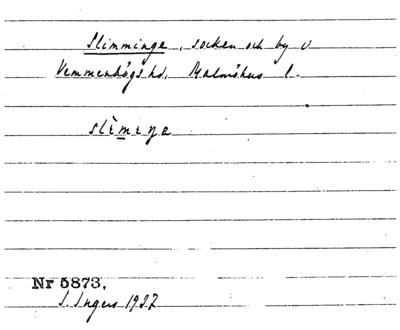 Slimminge, socken och by i
Vemmenhögs hd, Malmöhus l.
slìmiŋe
Nr 5873,
I. Ingers 1927